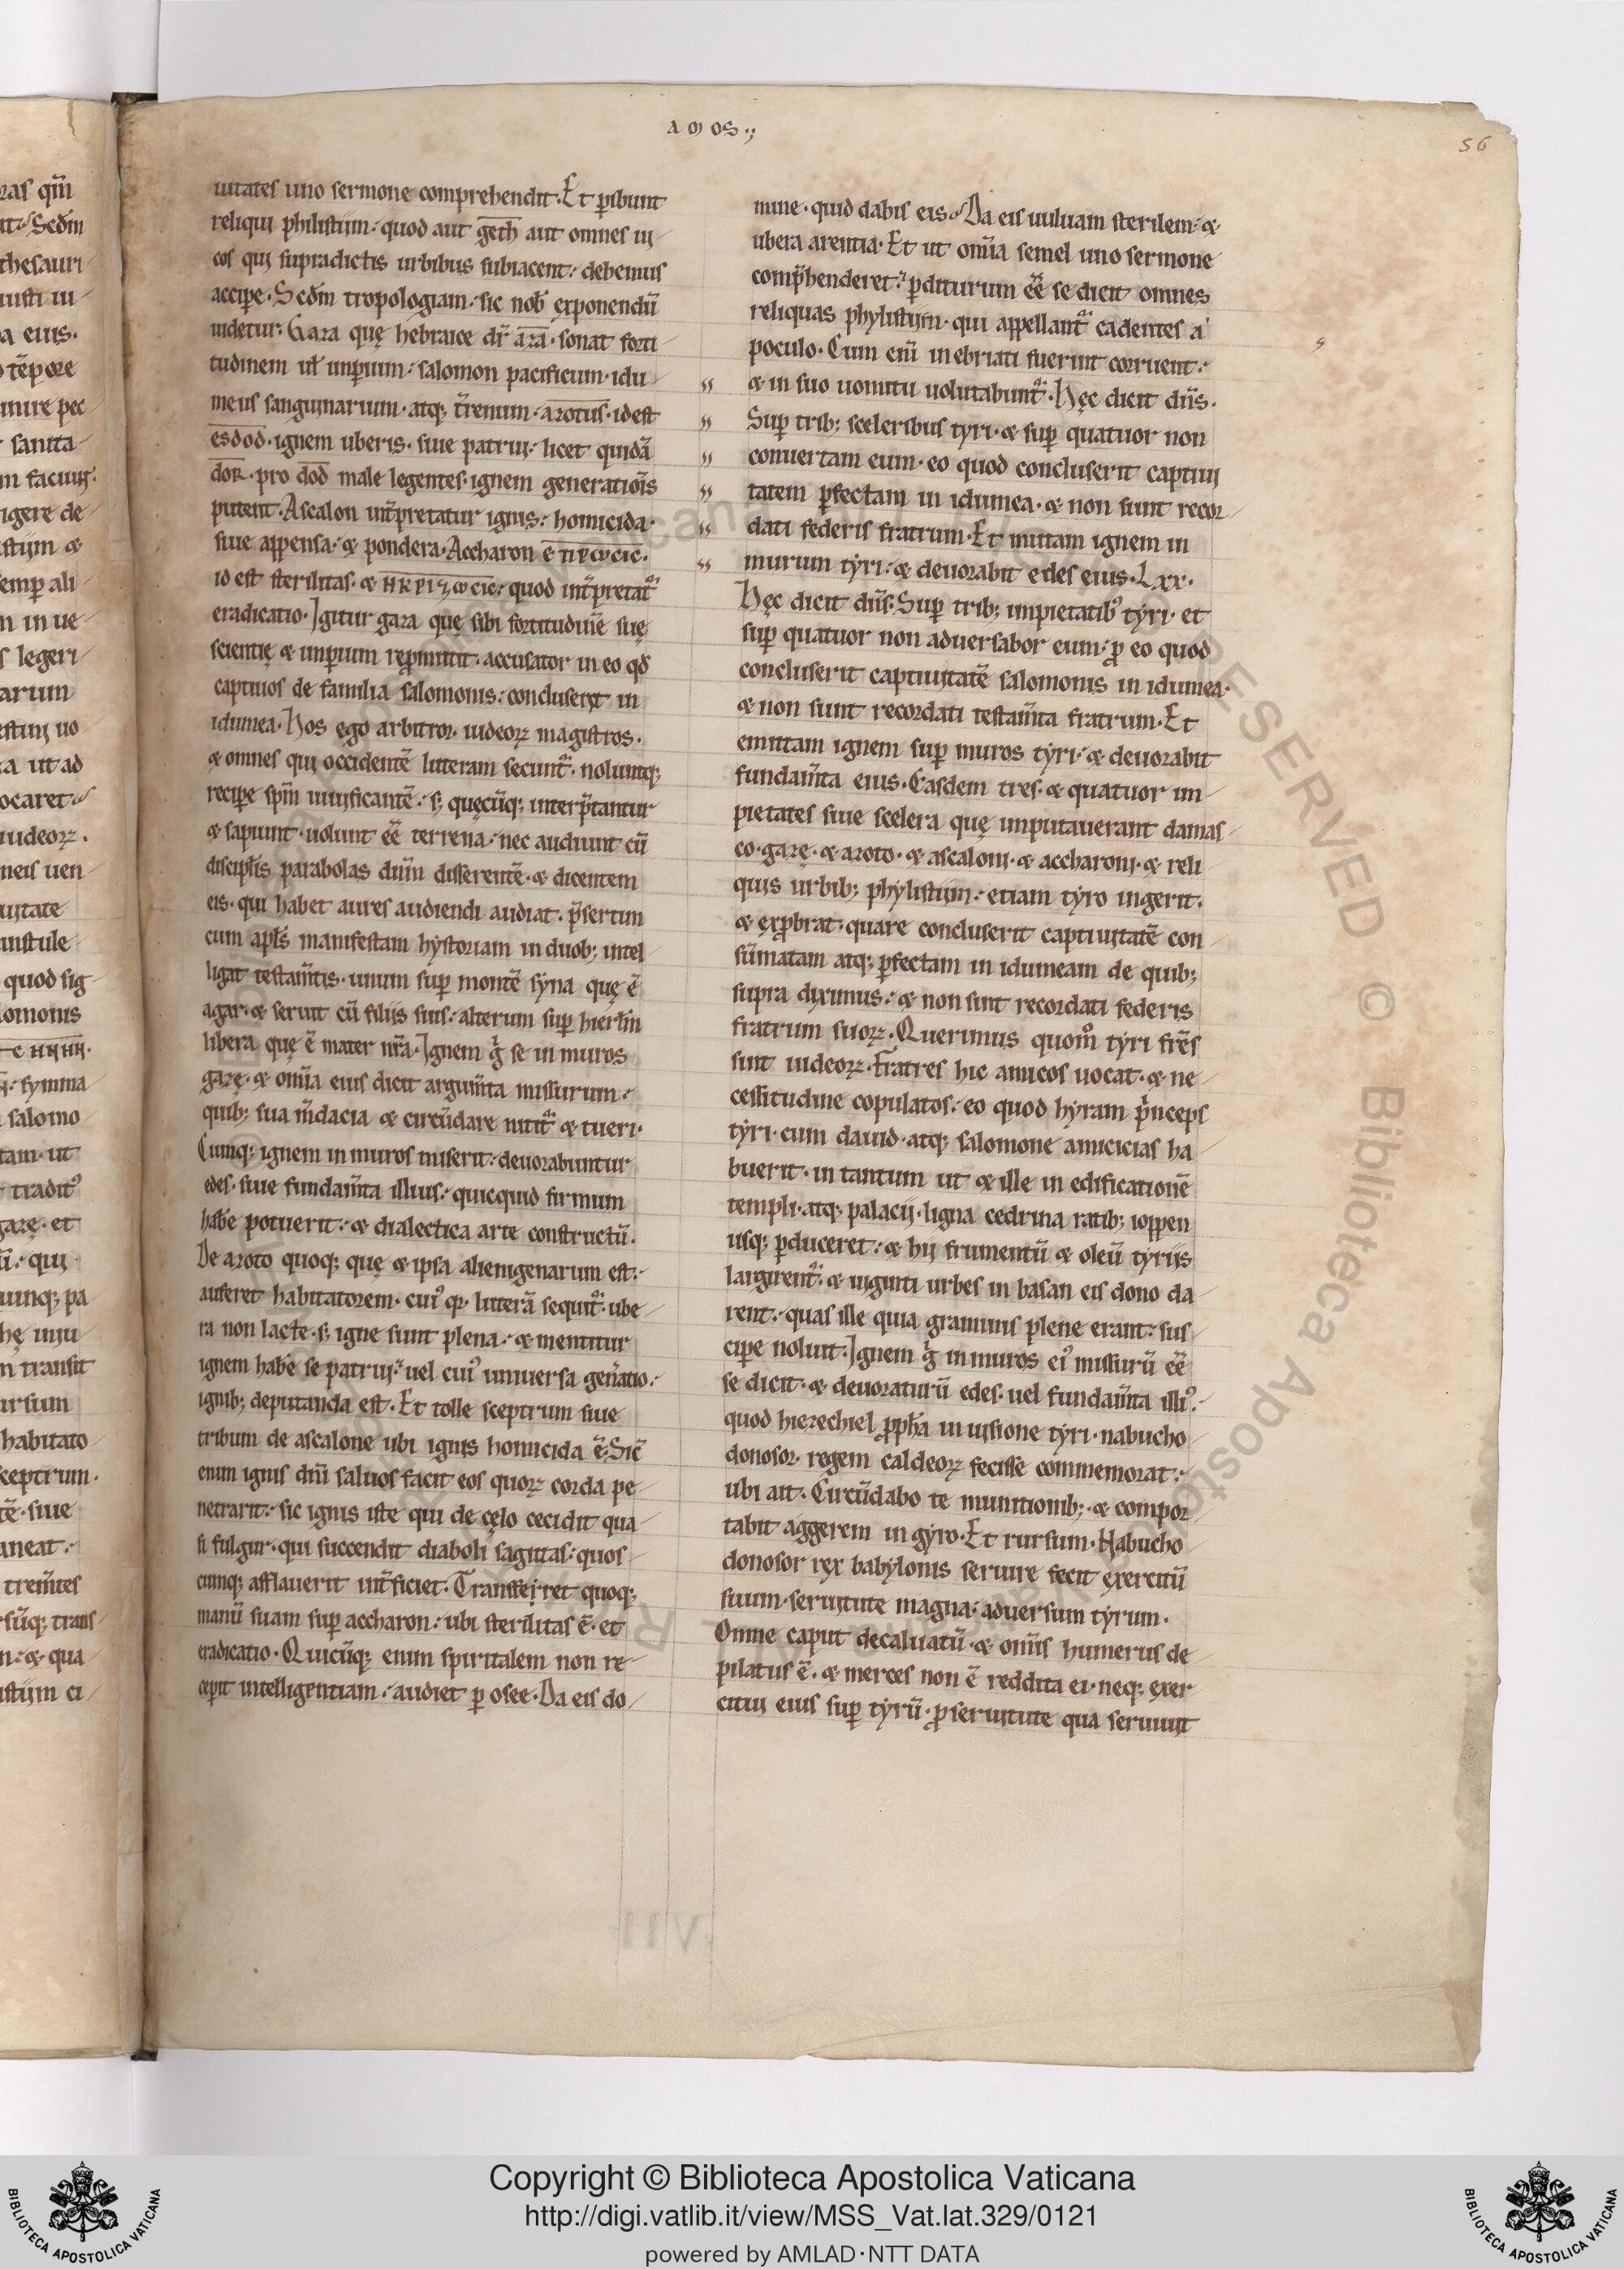 AMOS·;
56
uitates uno sermone comprehendit. Et ꝑibunt
reliqui philistiim: quod aut geth aut omnes ui
cos qui supradictis urbibus subiacent: debemus
accipe. Scd̄m tropologiam: sic nob̄ exponendū
uidetur. Gaza quę hebraice dr̄ aza. sonat forti
tudinem ul̄ imꝑium: salomon pacificum. idu
meus sanguinarium. atq; t̄renum. azotus. id est
esdod. ignem uberis. siue patrui: licet quidā
dor. pro dod male legentes. ignem generatiōis
putent. Ascalon int̄pretatur ignis: homicida.
siue appensa: & pondera. Accharon ē
id est sterilitas. & quod int̄pretat᷑
eradicatio. Igitur gaza quę sibi fortitudinē suę
scientię & imꝑium reꝓmittit. accusator in eo qd̄
captiuos de familia salomonis: concluserit in
idumea. Hos ego arbitror. iudeoꝝ magistros.
& omnes qui occidentē litteram secunt᷑. noluntq;
recipe sp̄m uiuificantē: s; quęcūq; interp̄tantur
& sapiunt. uolunt eē̄ terrena: nec audiunt cū
discipl̄is parabolas dn̄m disserentē. & dicentem
eis. qui habet aures audiendi audiat. p̄sertim
cum apl̄s manifestam hystoriam in duob; intel
ligat testam̄tis. unum suꝑ montē syna quę ē
agar. & seruit cū filiis suis: alterum suꝑ hierl̄m
libera quę ē mater nr̄a. Ignem g̊ se in muros
gazę. & om̄ia eius dicit argum̄ta missurum:
quib; sua m̄dacia & circūdare nitit᷑ & tueri.
Cumq; ignem in muros miserit: deuorabuntur
edes. siue fundam̄ta illius: quicquid firmum
hab̄e potuerit: & dialectica arte constructū.
De azoto quoq; quę & ipsa alienigenarum est:
auferet habitatorem. cui᷒ litterā sequit᷑. ube
ra non lacte. s; igne sunt plena: & mentitur
ignem hab̄e se patrui: uel cui᷒ uniuersa gen̄atio:
ignib; deputanda est. Et tolle sceptrum siue
tribum de ascalone ubi ignis homicida ē. Sic̄
enim ignis dn̄i saluos facit eos quoꝝ corda pe
netrarit: sic ignis iste qui de cęlo cecidit qua
si fulgur. qui succendit diaboli sagittas: quos
cumq; afflauerit int̄ficiet. Transferret quoq;
manū suam suꝑ accharon: ubi sterilitas ē. et
eradicatio. Quicūq; enim spiritalem non re
cepit intelligentiam: audiet ꝑ osee. Da eis do
mine. quid dabis eis. Da eis uuluam sterilem: &
ubera arentia. Et ut om̄ia semel uno sermone
comp̄henderet: ꝑditurum eē̄ se dicit omnes
reliquas phylistiim. qui appellant᷑ cadentes a
poculo. Cum eni᷒ inebriati fuerint corruent:
& in suo uomitu uolutabunt᷑. Hęc dicit dn̄s.
Suꝑ trib; sceleribus tyri. & suꝑ quatuor non
conuertam eum. eo quod concluserit captiui
tatem ꝑfectam in idumea. & non sunt recor
dati federis fratrum. Et mittam ignem in
murum tyri: & deuorabit edes eius. Lxx.
Hęc dicit dn̄s. Suꝑ trib; impietatib᷒ tyri. et
suꝑ quatuor non aduersabor eum: ꝓ eo quod
concluserit captiuitatē salomonis in idumea.
& non sunt recordati testam̄ta fratrum. Et
emittam ignem suꝑ muros tyri: & deuorabit
fundam̄ta eius. Easdem tres. & quatuor im
pietates siue scelera quę imputauerant damas
co. gazę. & azoto. & ascaloni. & accharoni. & reli
quis urbib; phylistiim: etiam tyro ingerit.
& exꝓbrat. quare concluserit captiuitatē con
sūmatam atq; ꝑfectam in idumeam de quib;
supra diximus: & non sint recordati federis
fratrum suoꝝ. Querimus quom̊ tyri fr̄es
sint iudeoꝝ. Fratres hic amicos uocat. & ne
cessitudine copulatos: eo quod hyram p̄nceps
tyri. cum dauid. atq; salomone amicicias ha
buerit. in tantum ut & ille in edificationē
templi. atq; palacij. ligna cedrina ratib; ioppen
usq; ꝑduceret: & hij frumentū & oleū tyriis
largirent᷑. & uiginti urbes in basan eis dono da
rent: quas ille quia graminis plene erant: sus
cipe noluit. Ignem g̊ in muros ei᷒ missurū eē̄
se dicit. & deuoraturū edes. uel fundam̄ta illi᷒:
quod hiezechiel ꝓph̄a in uisione tyri. nabucho
donosor. regem caldeoꝝ fecisse commemorat:
ubi ait. Circūdabo te munitionib;. & compor
tabit aggerem in gyro. Et rursum. Nabucho
donosor rex babylonis seruire fecit exercitū
suum. seruitute magna: aduersum tyrum.
Omne caput decaluatū. & om̄is humerus de
pilatus ē. & merces non ē reddita ei. neq; exer
citui eius suꝑ tyrū. ꝓ seruitute qua seruiuit
Copyright © Biblioteca Apostolica Vaticana
http://digi.vatlib.it/view/MSS_Vat.lat.329/0121
powered by AMLAD·NTT DATA
BIBLIOTECA APOSTOLICA VATICANA
BIBLIOTECA APOSTOLICA VATICANA